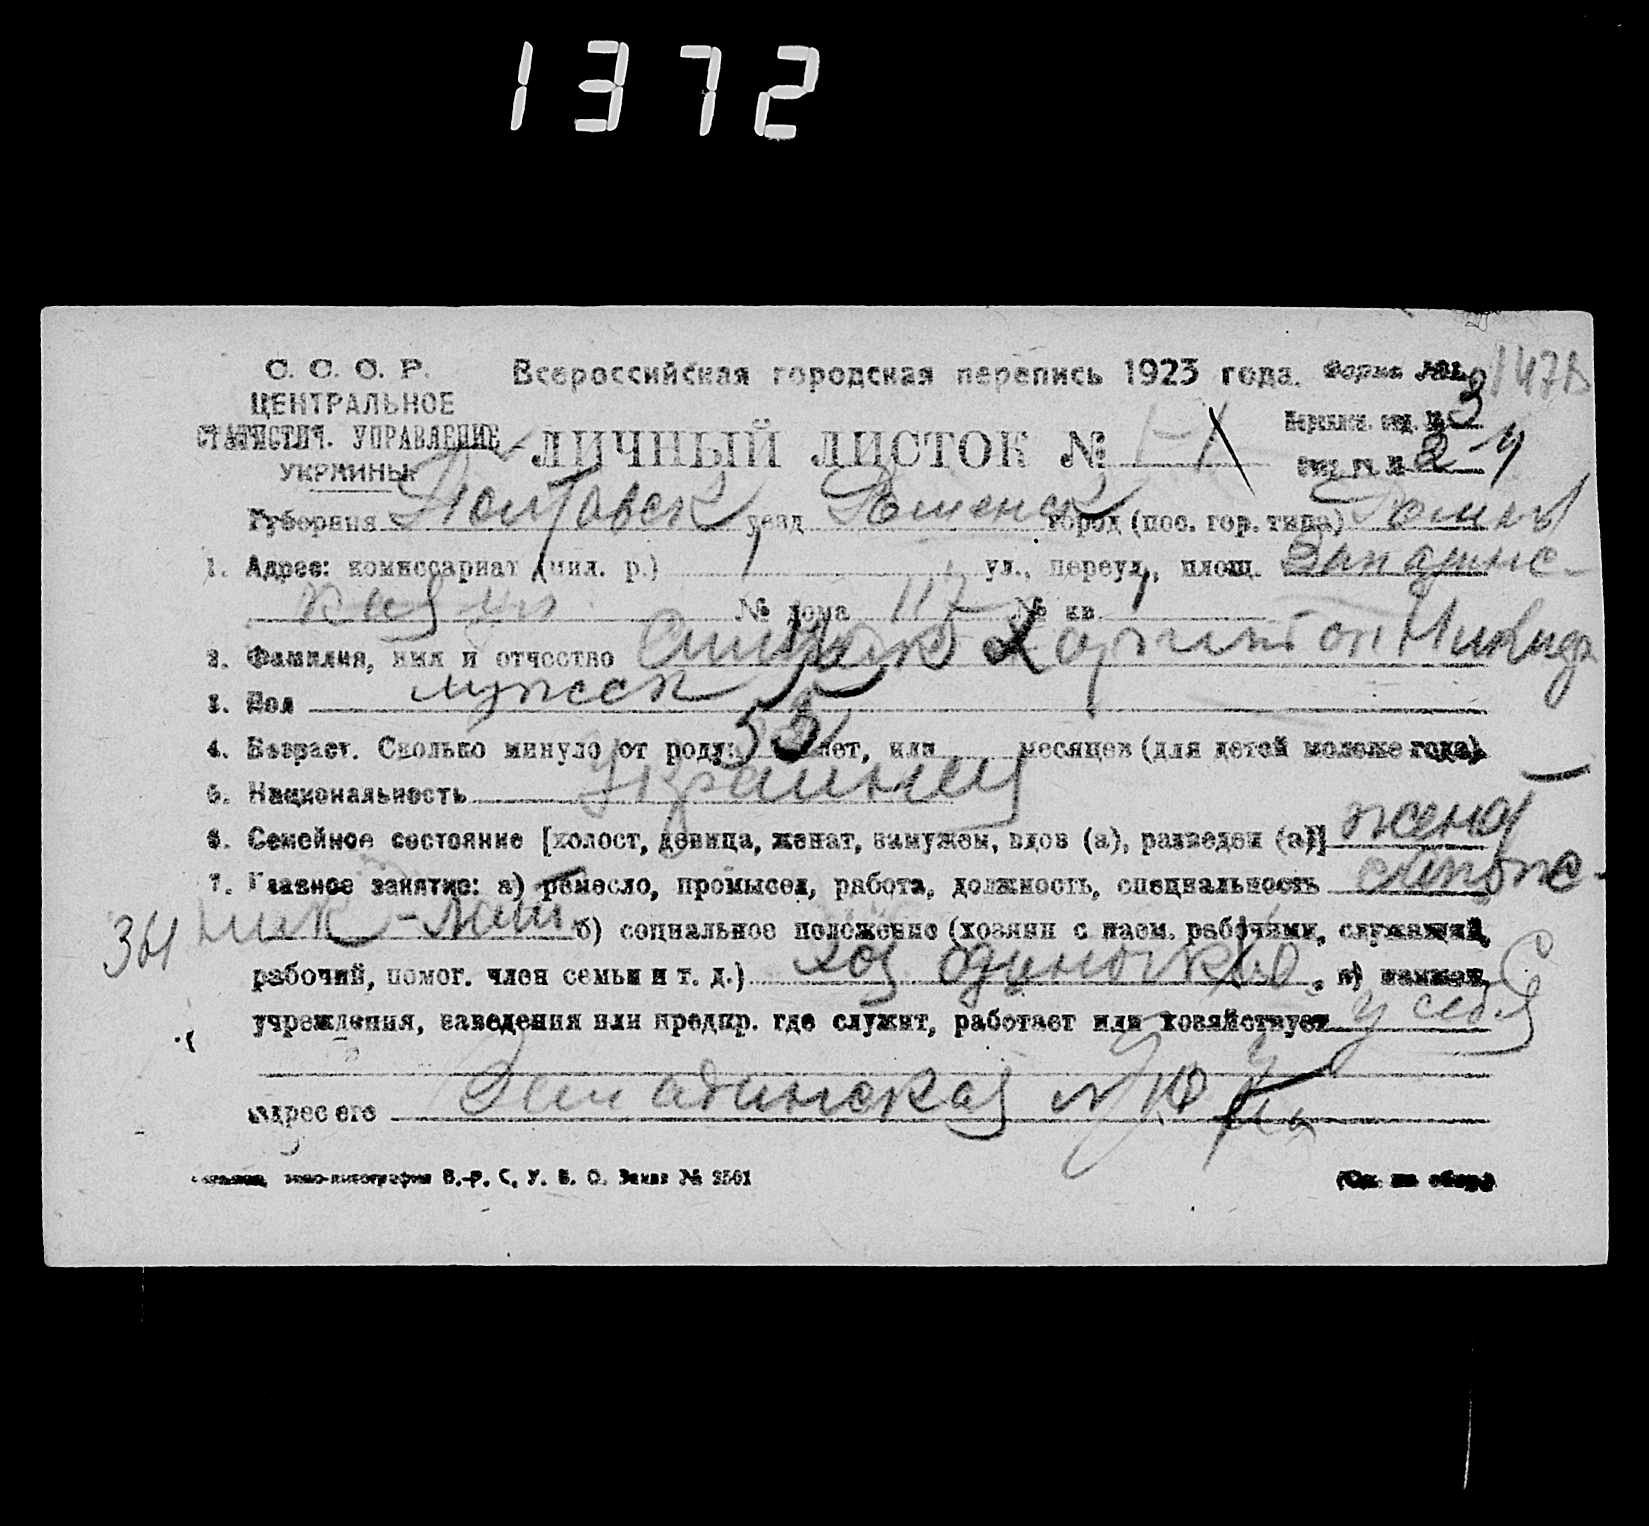 1372
С. С. С. Р. Всероссийская городская перепись 1923 года. Форма №
ЦЕНТРАЛЬНОЕ
СТАТИСТИЧ. УПРАВЛЕНИЕ ЛИЧНЫЙ ЛИСТОК №
УКРАИНЫ
Губерния Полтавск уезд Роменск город (пос. гор. типа) Ромны
1. Адрес: комиссариат (мил. р.) 1 ул., переул., площ.
кая ул № дома 117 № кв. 1
2. Фамилия, имя и отчество Харитон
3. Пол мужск
4. Возраст. Сколько минуло от роду 53 лет, или месяцев (для детей моложе года)
5. Национальность Украинец
6. Семейное состояние [холост, девица, женат, замужем, вдов (а), разведен (а)] женат
7. Главное занятие: а) ремесло, промысел, работа, должность, специальность сапож-
361 ник б) социальное положение (хозяин с наем. рабочими, служащий,
рабочий, помог. член семьи и т. д.) хоз одиночка, в) назван.
учреждения, заведения или предпр. где служит, работает или хозяйствует у себя
адрес его
типо-литография В.-Р. С. У. В. О. Заказ № 2501 (См. на обор.)